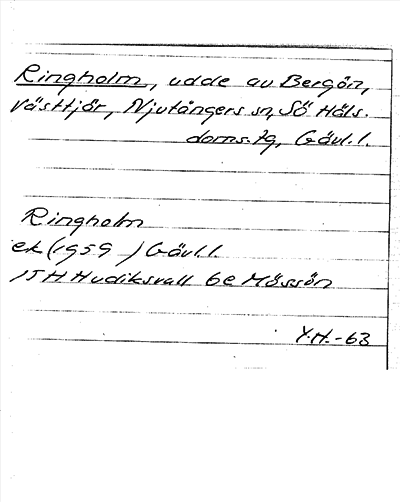 Ringholm, udde av Bergön,
Västtjör, Njutångers sn, Sö Häls.
doms.ag, Gävl.l.
Ringholm
ek (1959 ) Gävl.l.
15 H Hudiksvall 6e Mössön
Y.H.-63